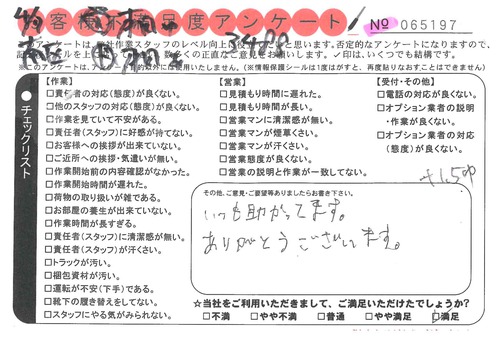 お客様不満足度アンケート
№ 065197
このアンケートは、弊社作業スタッフのレベル向上に役立てたいと思います。否定的なアンケートになりますので、
記入 を 数多くの正直なご意見をお願いします。✓印は、いくつでも結構です。
※このアンケートは、 以外には使用いたしません。(※情報保護シールは1度はがすと、再度貼りなおすことはできません)
チェックリスト
【作業】
□責任者の対応(態度)が良くない。
□他のスタッフの対応(態度)が良くない。
□作業を見ていて不安がある。
□責任者(スタッフ)に好感が持てない。
□お客様への挨拶が出来ていない。
□ご近所への挨拶・気遣いが無い。
□作業開始前の内容確認がなかった。
□作業開始時間が遅れた。
□荷物の取り扱いが雑である。
□お部屋の養生が出来ていない。
□作業時間が長すぎる。
□責任者(スタッフ)に清潔感が無い。
□責任者(スタッフ)が汗くさい。
□トラックが汚い。
□梱包資材が汚い。
□運転が不安(下手)である。
□靴下の履き替えをしてない。
□スタッフにやる気がみられない。
【営業】
□見積もり時間に遅れた。
□見積もり時間が長い。
□営業マンに清潔感が無い。
□営業マンが煙草くさい。
□営業マンが汗くさい。
□営業態度が良くない。
□営業の説明と作業が一致してない。
【受付・その他】
□電話の対応が良くない。
□オプション業者の説明
・作業が良くない。
□オプション業者の対応
(態度)が良くない。
その他、ご意見・ご要望等ありましたらお書き下さい。
いつも助かってます。
ありがとうございます。
☆当社をご利用いただきまして、ご満足いただけたでしょうか?
□不満 □やや不満 □普通 □やや満足 □満足